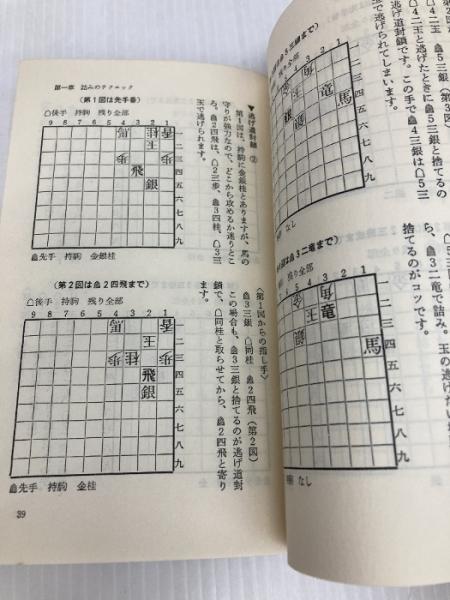 第一章　詰みのテクニック
(第1図は先手番)
△後手　持駒　残り全部
9 8 7 6 5 4 3 2 1
馬 桂 香
玉
歩 歩
飛
銀
一二三四五六七八九
▲先手　持駒　金銀桂
(第2図は▲2四飛まで)
△後手　持駒　残り全部
9 8 7 6 5 4 3 2 1
馬 香
玉
歩 桂 歩
飛
銀
一二三四五六七八九
▲先手　持駒　金桂
39
▼逃げ道封鎖②
第1図は、持駒に金銀桂とありますが、馬の
守りが強力なので、どこから攻めるか迷うとこ
ろ。▲2四飛は、△2三歩、▲3四桂、△3三
玉で逃げられます。
〈第1図からの指し手〉
▲3三銀　△同桂　▲2四飛(第2図)
この場合も、▲3三銀と捨てるのが逃げ道封
鎖で、△同桂と取らせてから、▲2四飛と寄り
ます。
▲5三銀(第3図)
△4二玉と逃げたときに▲5三銀と捨てるの
道封鎖です。この手で▲4三銀は△5三
玉で逃げられてしまいます。
5 4 3 2 1
竜
馬
一二三四五六七八九
なし
3二竜まで)
残り全部
4 3 2 1
角
竜
銀
馬
一二三四五六七八九
なし
ら、▲3二竜で詰み。玉の逃げたい
捨てるのがコツです。